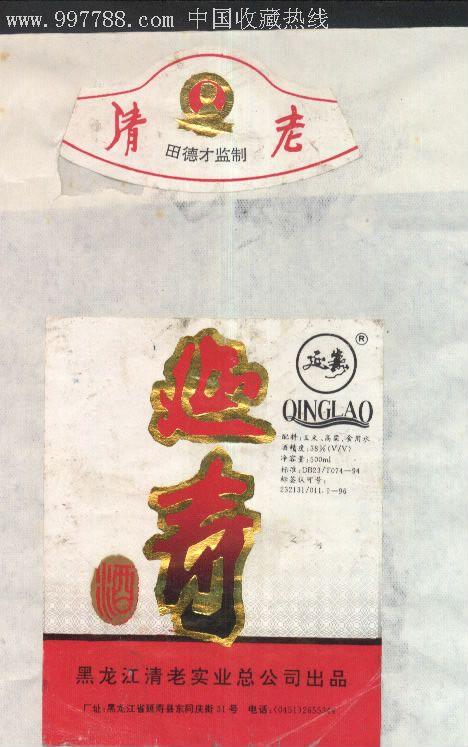 www.997788.com 中国收藏热线
清 老
田德才监制
延寿
酒
延寿
®
QINGLAO
配料:玉米、高粱、食用水
酒精度:38%(V/V)
净容量:500ml
标准:DB23/T074-94
标签认可号:
232131/011.
-96
黑龙江清老实业总公司出品
厂址:黑龙江省延寿县东同庆街31号 电话:(0451)